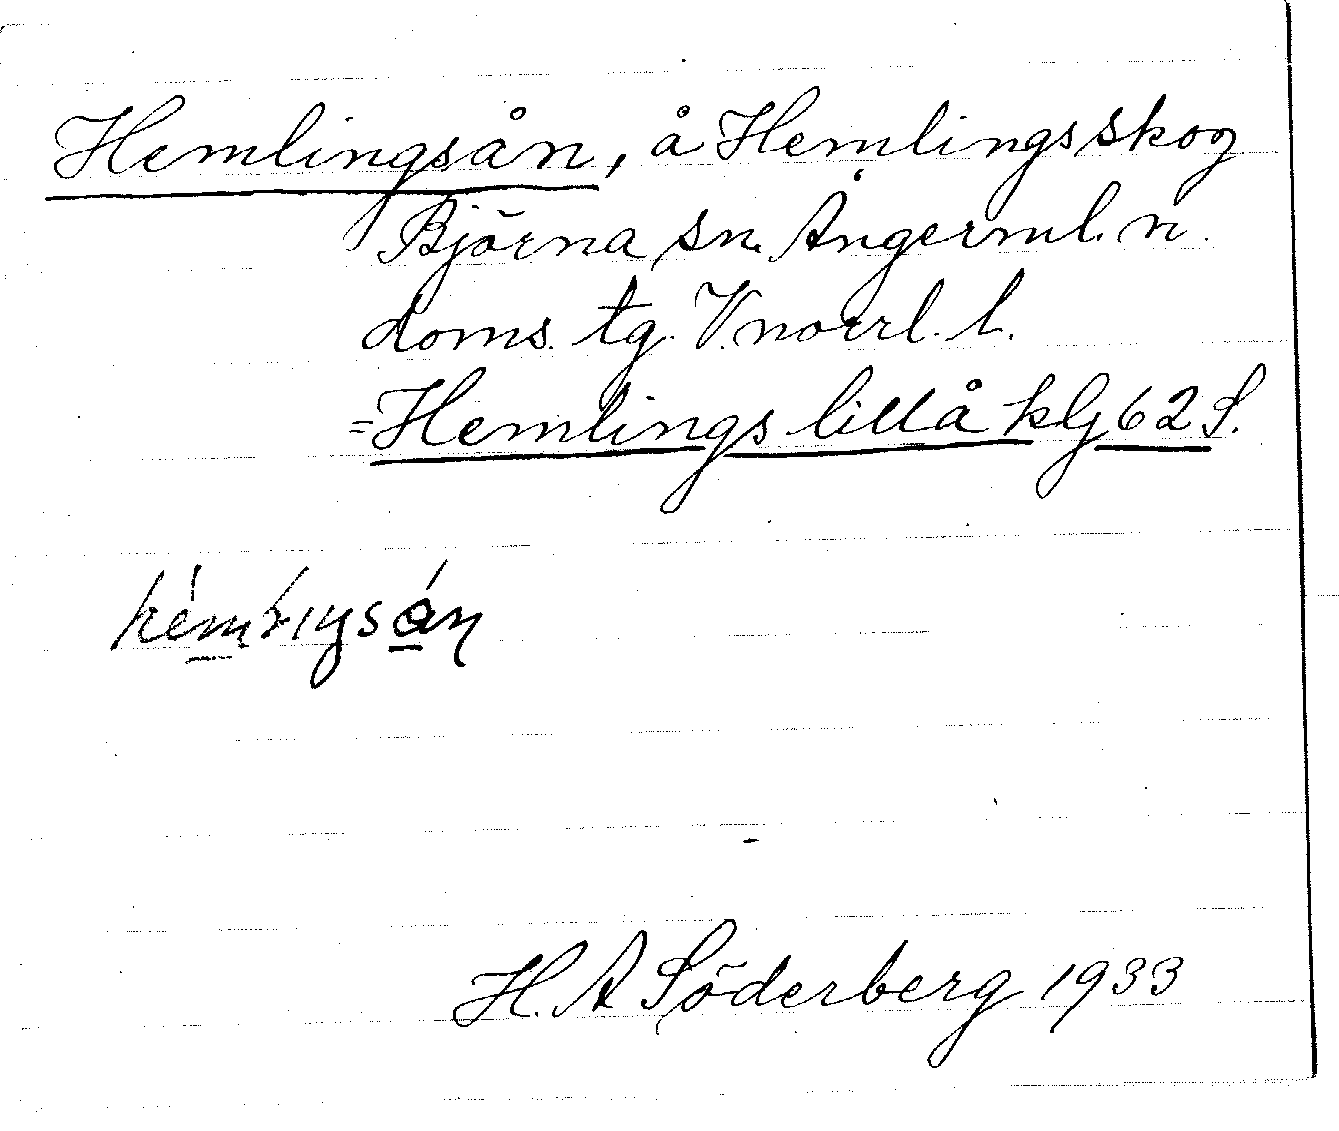 Hemlingsån, å Hemlingsskog
Björna sn. Ångerml. n.
doms. tg. V. norrl. l.
=Hemlings lillå kbl 62 S.
H. A Söderberg 1933